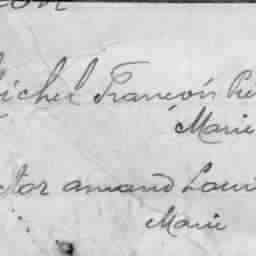 ichel François
Marie
tor amand Loui
Marie